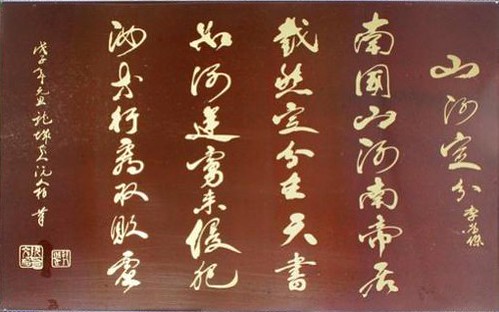 山河定分
李常傑
南國山河南帝居
截然定分在天書
如何逆虜来侵犯
汝等行看取敗虛
戊子年元旦